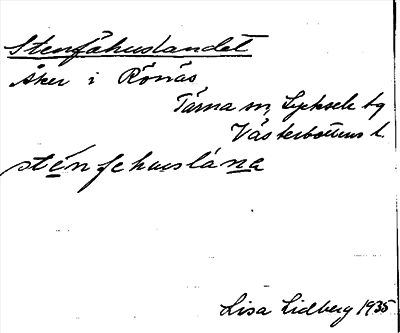 Stenfähuslandet
Åker i Rönäs
Tärna sn, Lycksele tg
Västerbottens l.
sténfehuslána
Lisa Lidberg 1935